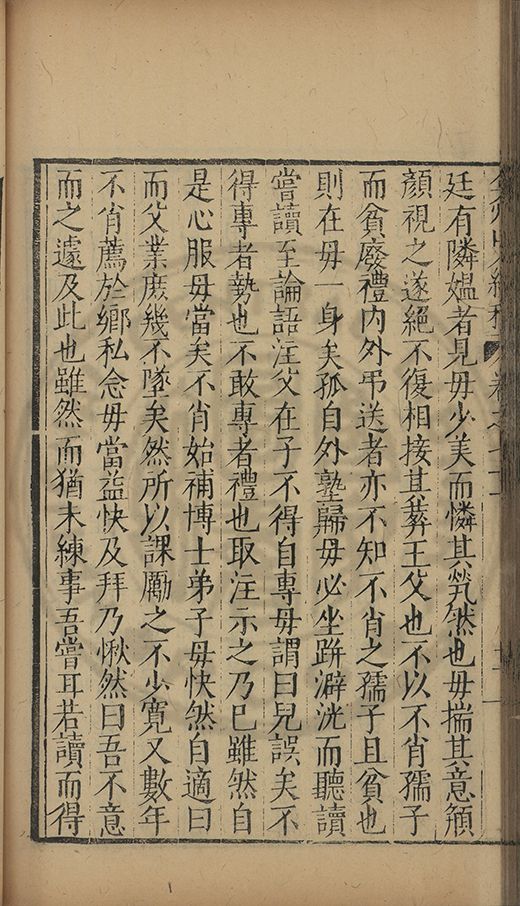 廷有隣媼者見毋少美而憐其煢然也毋揣其意頩
顏視之遂絕不復相接其葬王父也不以不肖孺子
而貧廢禮內外弔送者亦不知不肖之孺子且貧也
則在毋一身矣孤自外塾歸毋必坐跰澼洸而聽讀
嘗讀至論語注父在子不得自專毋謂曰兒誤矣不
得專者勢也不敢專者禮也取注示之乃已雖然自
是心服毋當矣不肖始補博士弟子毋快然自適曰
而父業庶幾不墜矣然所以課勵之不少寬又數年
不肖薦於鄉私念毋當益快及拜乃愀然曰吾不意
而之遽及此也雖然而猶未練事吾嘗耳若讀而得